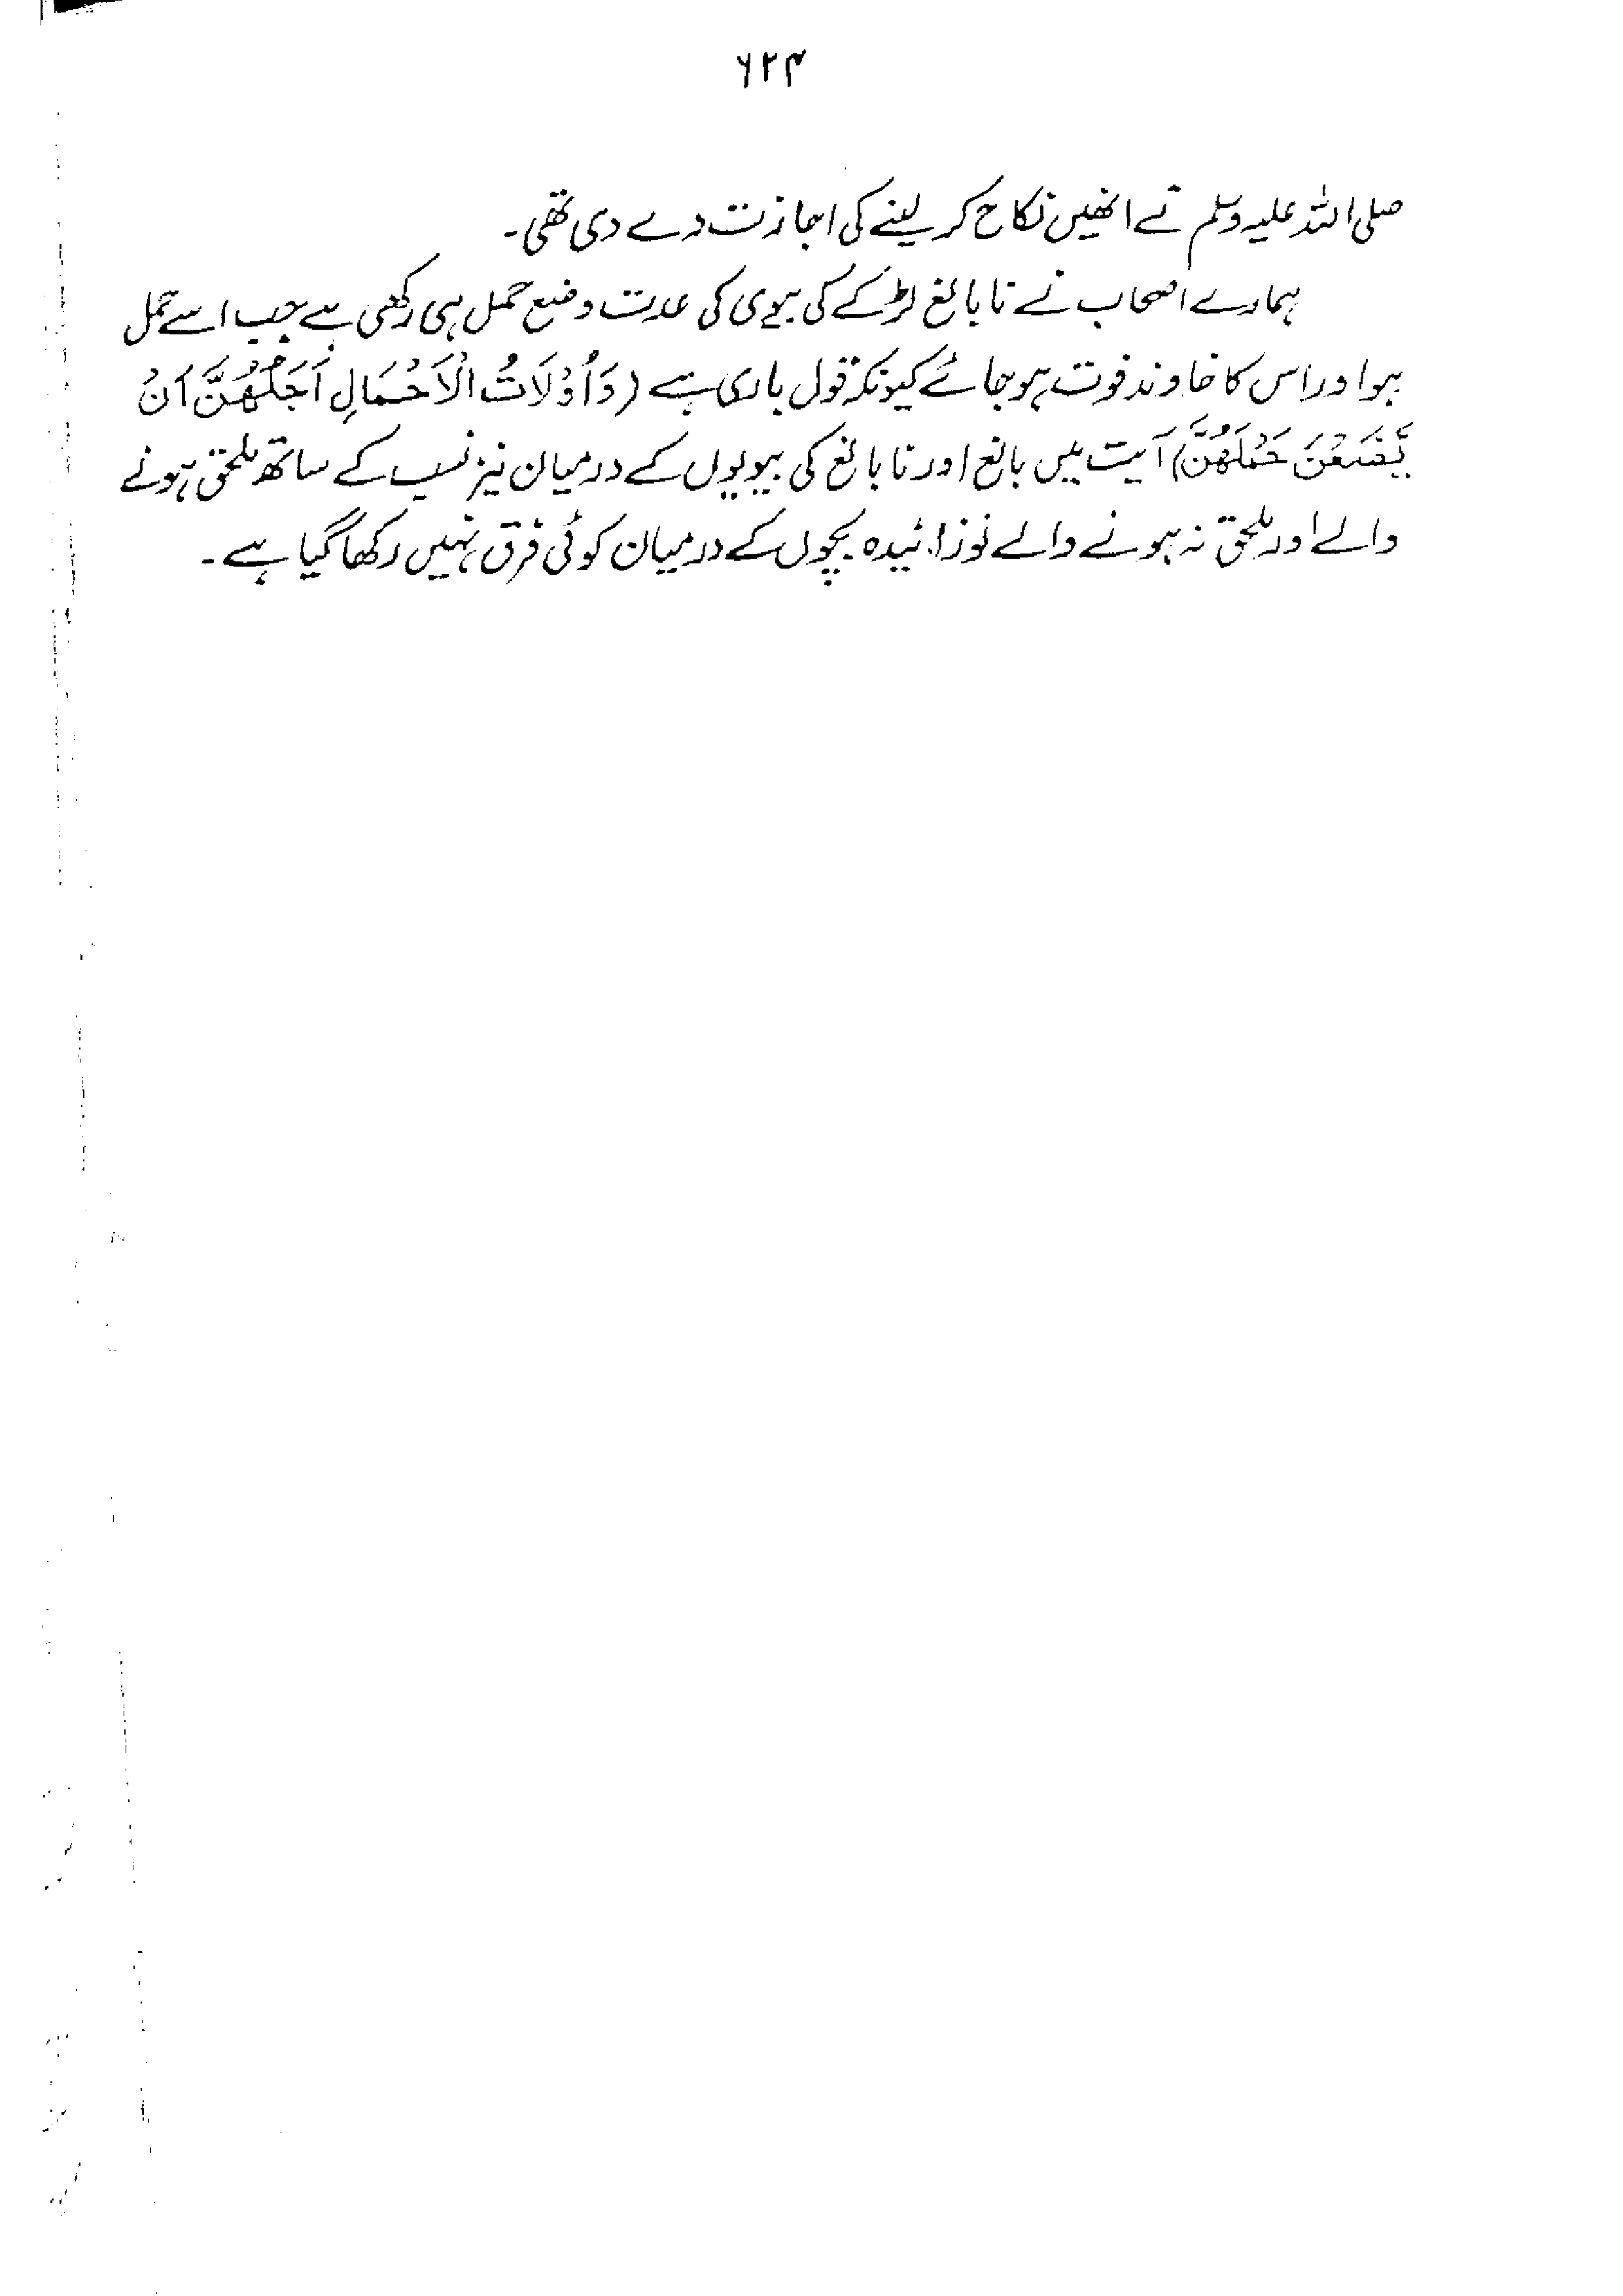 ۶۲۴
صلی اللہ علیہ وسلم نے انھیں نکاح کر لینے کی اجازت دے دی تھی۔
ہمارے اصحاب نے نابالغ لڑکے کی بیوی کی عدت وضع حمل ہی رکھی ہے جب اسے حمل
ہو اور اس کا خاوند فوت ہو جائے کیونکہ قول باری ہے (وَاُوْلَاتُ الْاَحْمَالِ اَجَلُهُنَّ اَنْ
يَّضَعْنَ حَمْلَهُنَّ) آیت میں بالغ اور نابالغ کی بیویوں کے درمیان نیز نسب کے ساتھ ملحق ہونے
والے اور ملحق نہ ہونے والے نوزائیدہ بچوں کے درمیان کوئی فرق نہیں رکھا گیا ہے۔